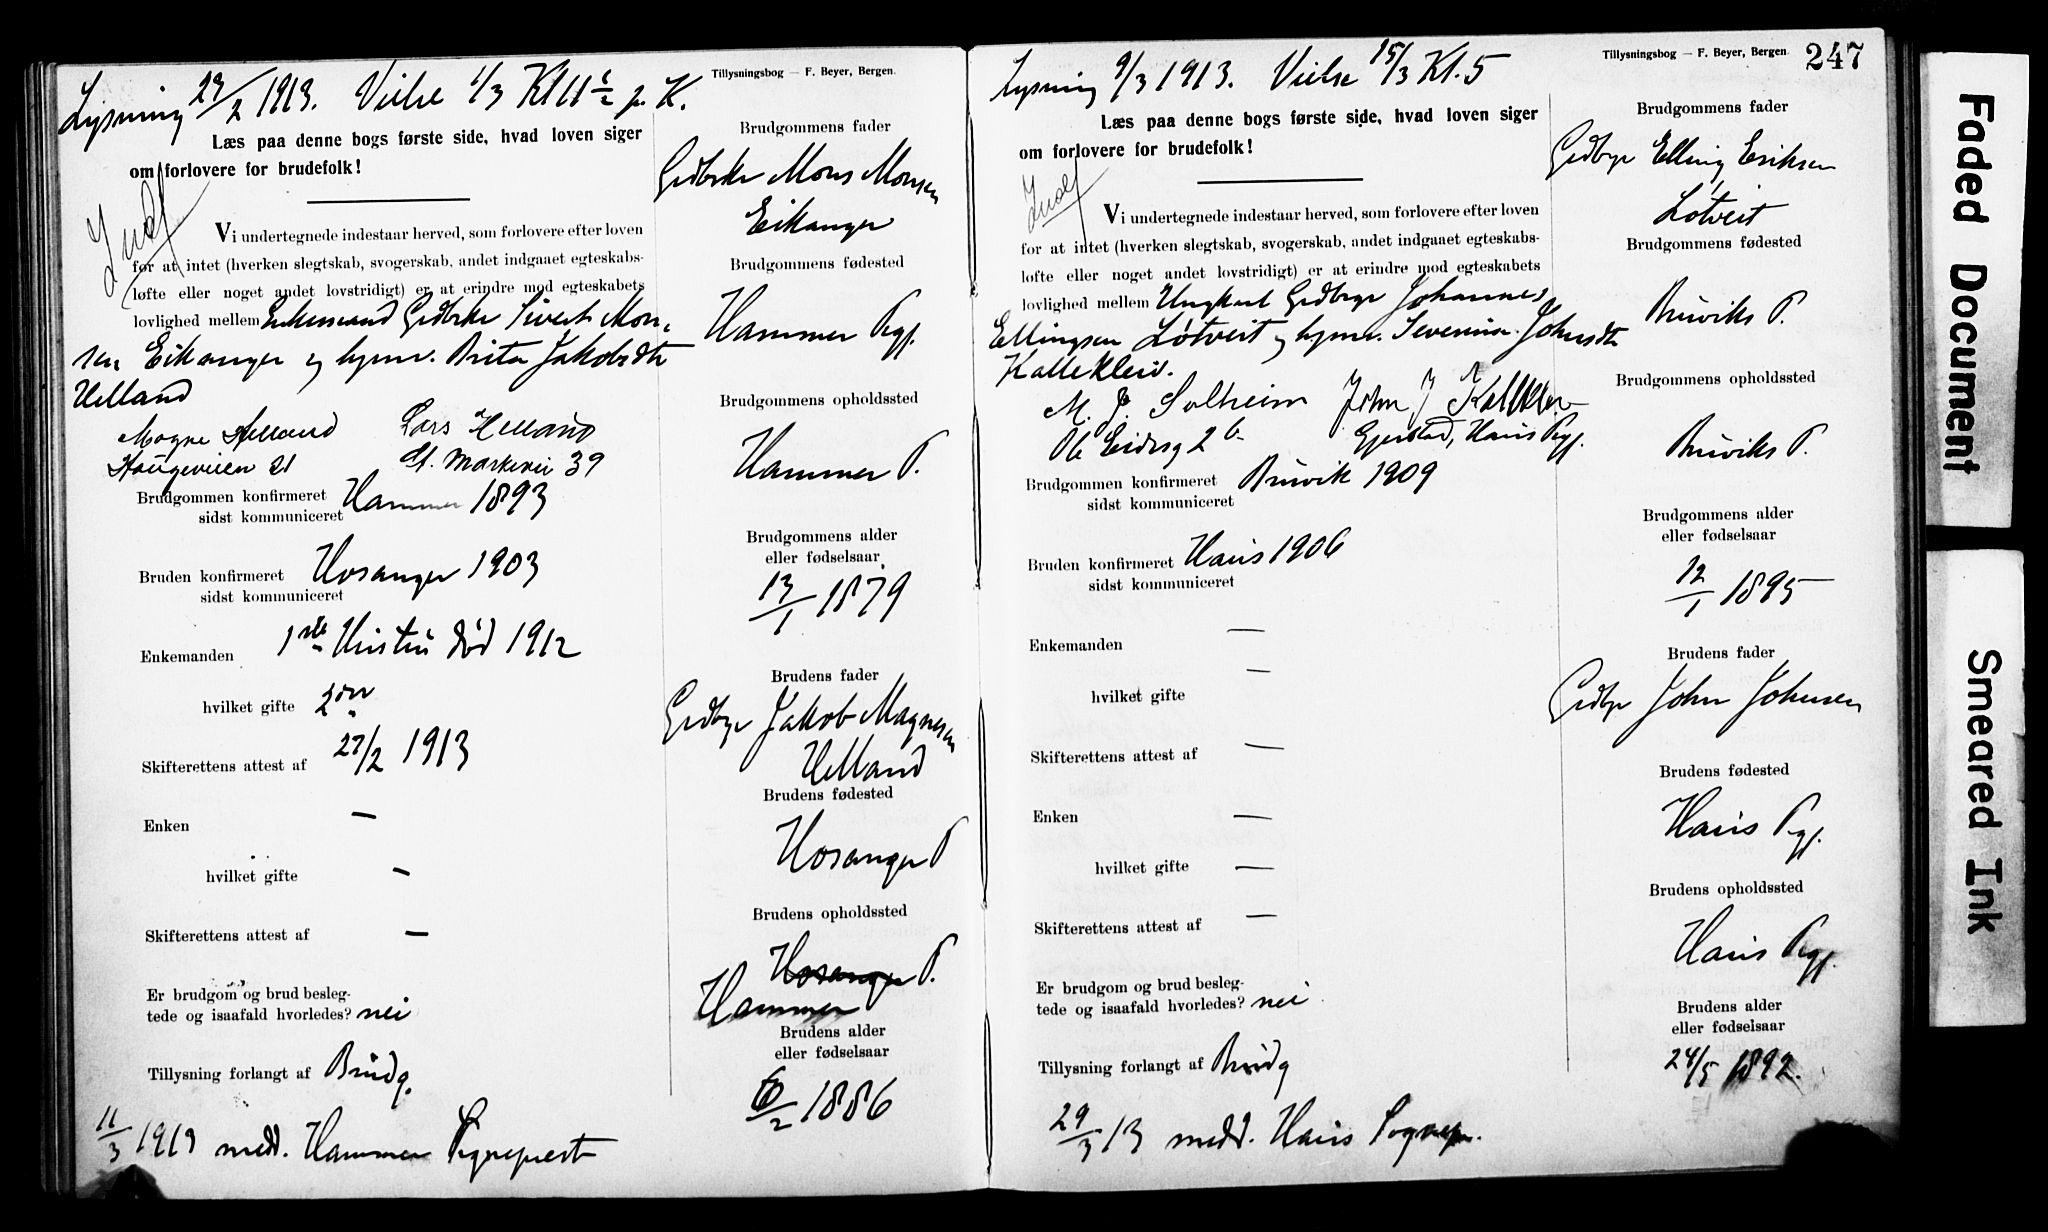 Lysning 23/2 1913. Vielse 1/3 Kl 11 1/2 p. K.
Tillysningsbog — F. Beyer, Bergen.
Læs paa denne bogs første side, hvad loven siger
om forlovere for brudefolk!
Indf
Vi undertegnede indestaar herved, som forlovere efter loven
for at intet (hverken slegtskab, svogerskab, andet indgaaet egteskabs-
løfte eller noget andet lovstridigt) er at erindre mod egteskabets
lovlighed mellem Enkemand Grdbrk Sivert Mon-
sen Eikanger og kpmr. Brita Jakobsdtr
Helland
Mogne Helland Lars Helland
Haugeveien 21 St. Markevei 39
Brudgommen konfirmeret Hammer 1893
sidst kommuniceret
Bruden konfirmeret Hosanger 1903
sidst kommuniceret
Enkemanden 1ste Hustru død 1912
hvilket gifte 2det
Skifterettens attest af 27/2 1913
Enken —
hvilket gifte —
Skifterettens attest af —
Er brudgom og brud besleg-
tede og isaafald hvorledes? nei
Tillysning forlangt af Brudg.
11/3 1913 medd. Hammer Sogneprest
Brudgommens fader
Grdbrk Mons Monsen
Eikanger
Brudgommens fødested
Hammer Pgj.
Brudgommens opholdssted
Hammer P.
Brudgommens alder
eller fødselsaar
13/1 1879
Brudens fader
Grdbr Jakob Magnesen
Helland
Brudens fødested
Hosanger P
Brudens opholdssted
Hosanger P.
Hammer
Brudens alder
eller fødselsaar
6/2 1886
Lysning 9/3 1913. Vielse 15/3 Kl. 5
Tillysningsbog — F. Beyer, Bergen.
247
Læs paa denne bogs første side, hvad loven siger
om forlovere for brudefolk!
Indf
Vi undertegnede indestaar herved, som forlovere efter loven
for at intet (hverken slegtskab, svogerskab, andet indgaaet egteskabs-
løfte eller noget andet lovstridigt) er at erindre mod egteskabets
lovlighed mellem Ungkarl Grdbr Johannes
Ellingsen Løtveit og kpmr. Severine Johnsdtr
Kallekleiv.
M. J. Solheim John J Kallekleiv
Ol Eidesg 2 b Gjerstad, Haus Pgj.
Brudgommen konfirmeret Bruvik 1909
sidst kommuniceret
Bruden konfirmeret Haus 1906
sidst kommuniceret
Enkemanden —
hvilket gifte —
Skifterettens attest af —
Enken —
hvilket gifte —
Skifterettens attest af —
Er brudgom og brud besleg-
tede og isaafald hvorledes? nei
Tillysning forlangt af Brudg
29/3 13 medd. Haus Sognepr.
Brudgommens fader
Grdbr Elling Eriksen
Løtveit
Brudgommens fødested
Bruviks P.
Brudgommens opholdssted
Bruviks P.
Brudgommens alder
eller fødselsaar
12/1 1895
Brudens fader
Grdbr John Johnsen
Brudens fødested
Haus Pgj.
Brudens opholdssted
Haus Pgj.
Brudens alder
eller fødselsaar
24/5 1892.
Faded Document
Smeared Ink